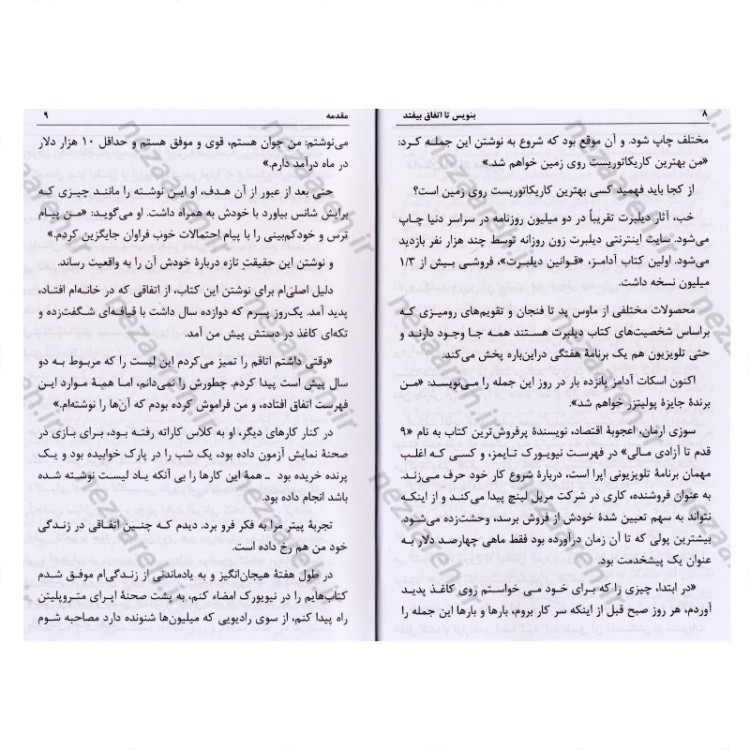 ۸ بنویس تا اتفاق بیفتد
مختلف چاپ شود. و آن موقع بود که شروع به نوشتن این جمله کرد:
«من بهترین کاریکاتوریست روی زمین خواهم شد.»
از کجا باید فهمید کسی بهترین کاریکاتوریست روی زمین است؟
خب، آثار دیلبرت تقریباً در دو میلیون روزنامه در سراسر دنیا چاپ
می‌شود. سایت اینترنتی دیلبرت زون روزانه توسط چند هزار نفر بازدید
می‌شود. اولین کتاب آدامز، «قوانین دیلبرت»، فروشی بیش از ۱/۳
میلیون نسخه داشت.
محصولات مختلفی از ماوس پد تا فنجان و تقویم‌های رومیزی که
براساس شخصیت‌های کتاب دیلبرت هستند همه جا وجود دارند و
حتی تلویزیون هم یک برنامهٔ هفتگی دراین‌باره پخش می‌کند.
اکنون اسکات آدامز پانزده بار در روز این جمله را می‌نویسد: «من
برندهٔ جایزهٔ پولیتزر خواهم شد».
سوزی ارمان، اعجوبهٔ اقتصاد، نویسندهٔ پرفروش‌ترین کتاب به نام «۹
قدم تا آزادی مالی» در فهرست نیویورک تایمز، و کسی که اغلب
مهمان برنامهٔ تلویزیونی اپرا است، دربارهٔ شروع کار خود حرف می‌زند.
به عنوان فروشنده، کاری در شرکت مریل لینچ پیدا می‌کند و از اینکه
نتواند به سهم تعیین شدهٔ خودش از فروش برسد، وحشت‌زده می‌شود.
بیشترین پولی که تا آن زمان درآورده بود فقط ماهی چهارصد دلار به
عنوان یک پیشخدمت بود.
«در ابتدا، چیزی را که برای خود می خواستم روی کاغذ پدید
آوردم، هر روز صبح قبل از اینکه سر کار بروم، بارها و بارها این جمله را
مقدمه ۹
می‌نوشتم: من جوان هستم، قوی و موفق هستم و حداقل ۱۰ هزار دلار
در ماه درآمد دارم.»
حتی بعد از عبور از آن هدف، او این نوشته را مانند چیزی که
برایش شانس بیاورد با خودش به همراه داشت. او می‌گوید: «من پیام
ترس و خودکم‌بینی را با پیام احتمالات خوب فراوان جایگزین کردم.»
و نوشتن این حقیقت تازه دربارهٔ خودش آن را به واقعیت رساند.
دلیل اصلی‌ام برای نوشتن این کتاب، از اتفاقی که در خانه‌ام افتاد،
پدید آمد. یک‌روز پسرم که دوازده سال داشت با قیافه‌ای شگفت‌زده و
تکه‌ای کاغذ در دستش پیش من آمد.
«وقتی داشتم اتاقم را تمیز می‌کردم این لیست را که مربوط به دو
سال پیش است پیدا کردم. چطورش را نمی‌دانم، اما همهٔ موارد این
فهرست اتفاق افتاده، و من فراموش کرده بودم که آن‌ها را نوشته‌ام.»
در کنار کارهای دیگر، او به کلاس کاراته رفته بود، برای بازی در
صحنهٔ نمایش آزمون داده بود، یک شب را در پارک خوابیده بود و یک
پرنده خریده بود ـ همهٔ این کارها را بی آنکه یاد لیست نوشته شده
باشد انجام داده بود.
تجربهٔ پیتر مرا به فکر فرو برد. دیدم که چنین اتفاقی در زندگی
خود من هم رخ داده است.
در طول هفتهٔ هیجان‌انگیز و به یادماندنی از زندگی‌ام موفق شدم
کتاب‌هایم را در نیویورک امضاء کنم، به پشت صحنهٔ اپرای متروپلیتن
راه پیدا کنم، از سوی رادیویی که میلیون‌ها شنونده دارد مصاحبه شوم
nezaareh.ir